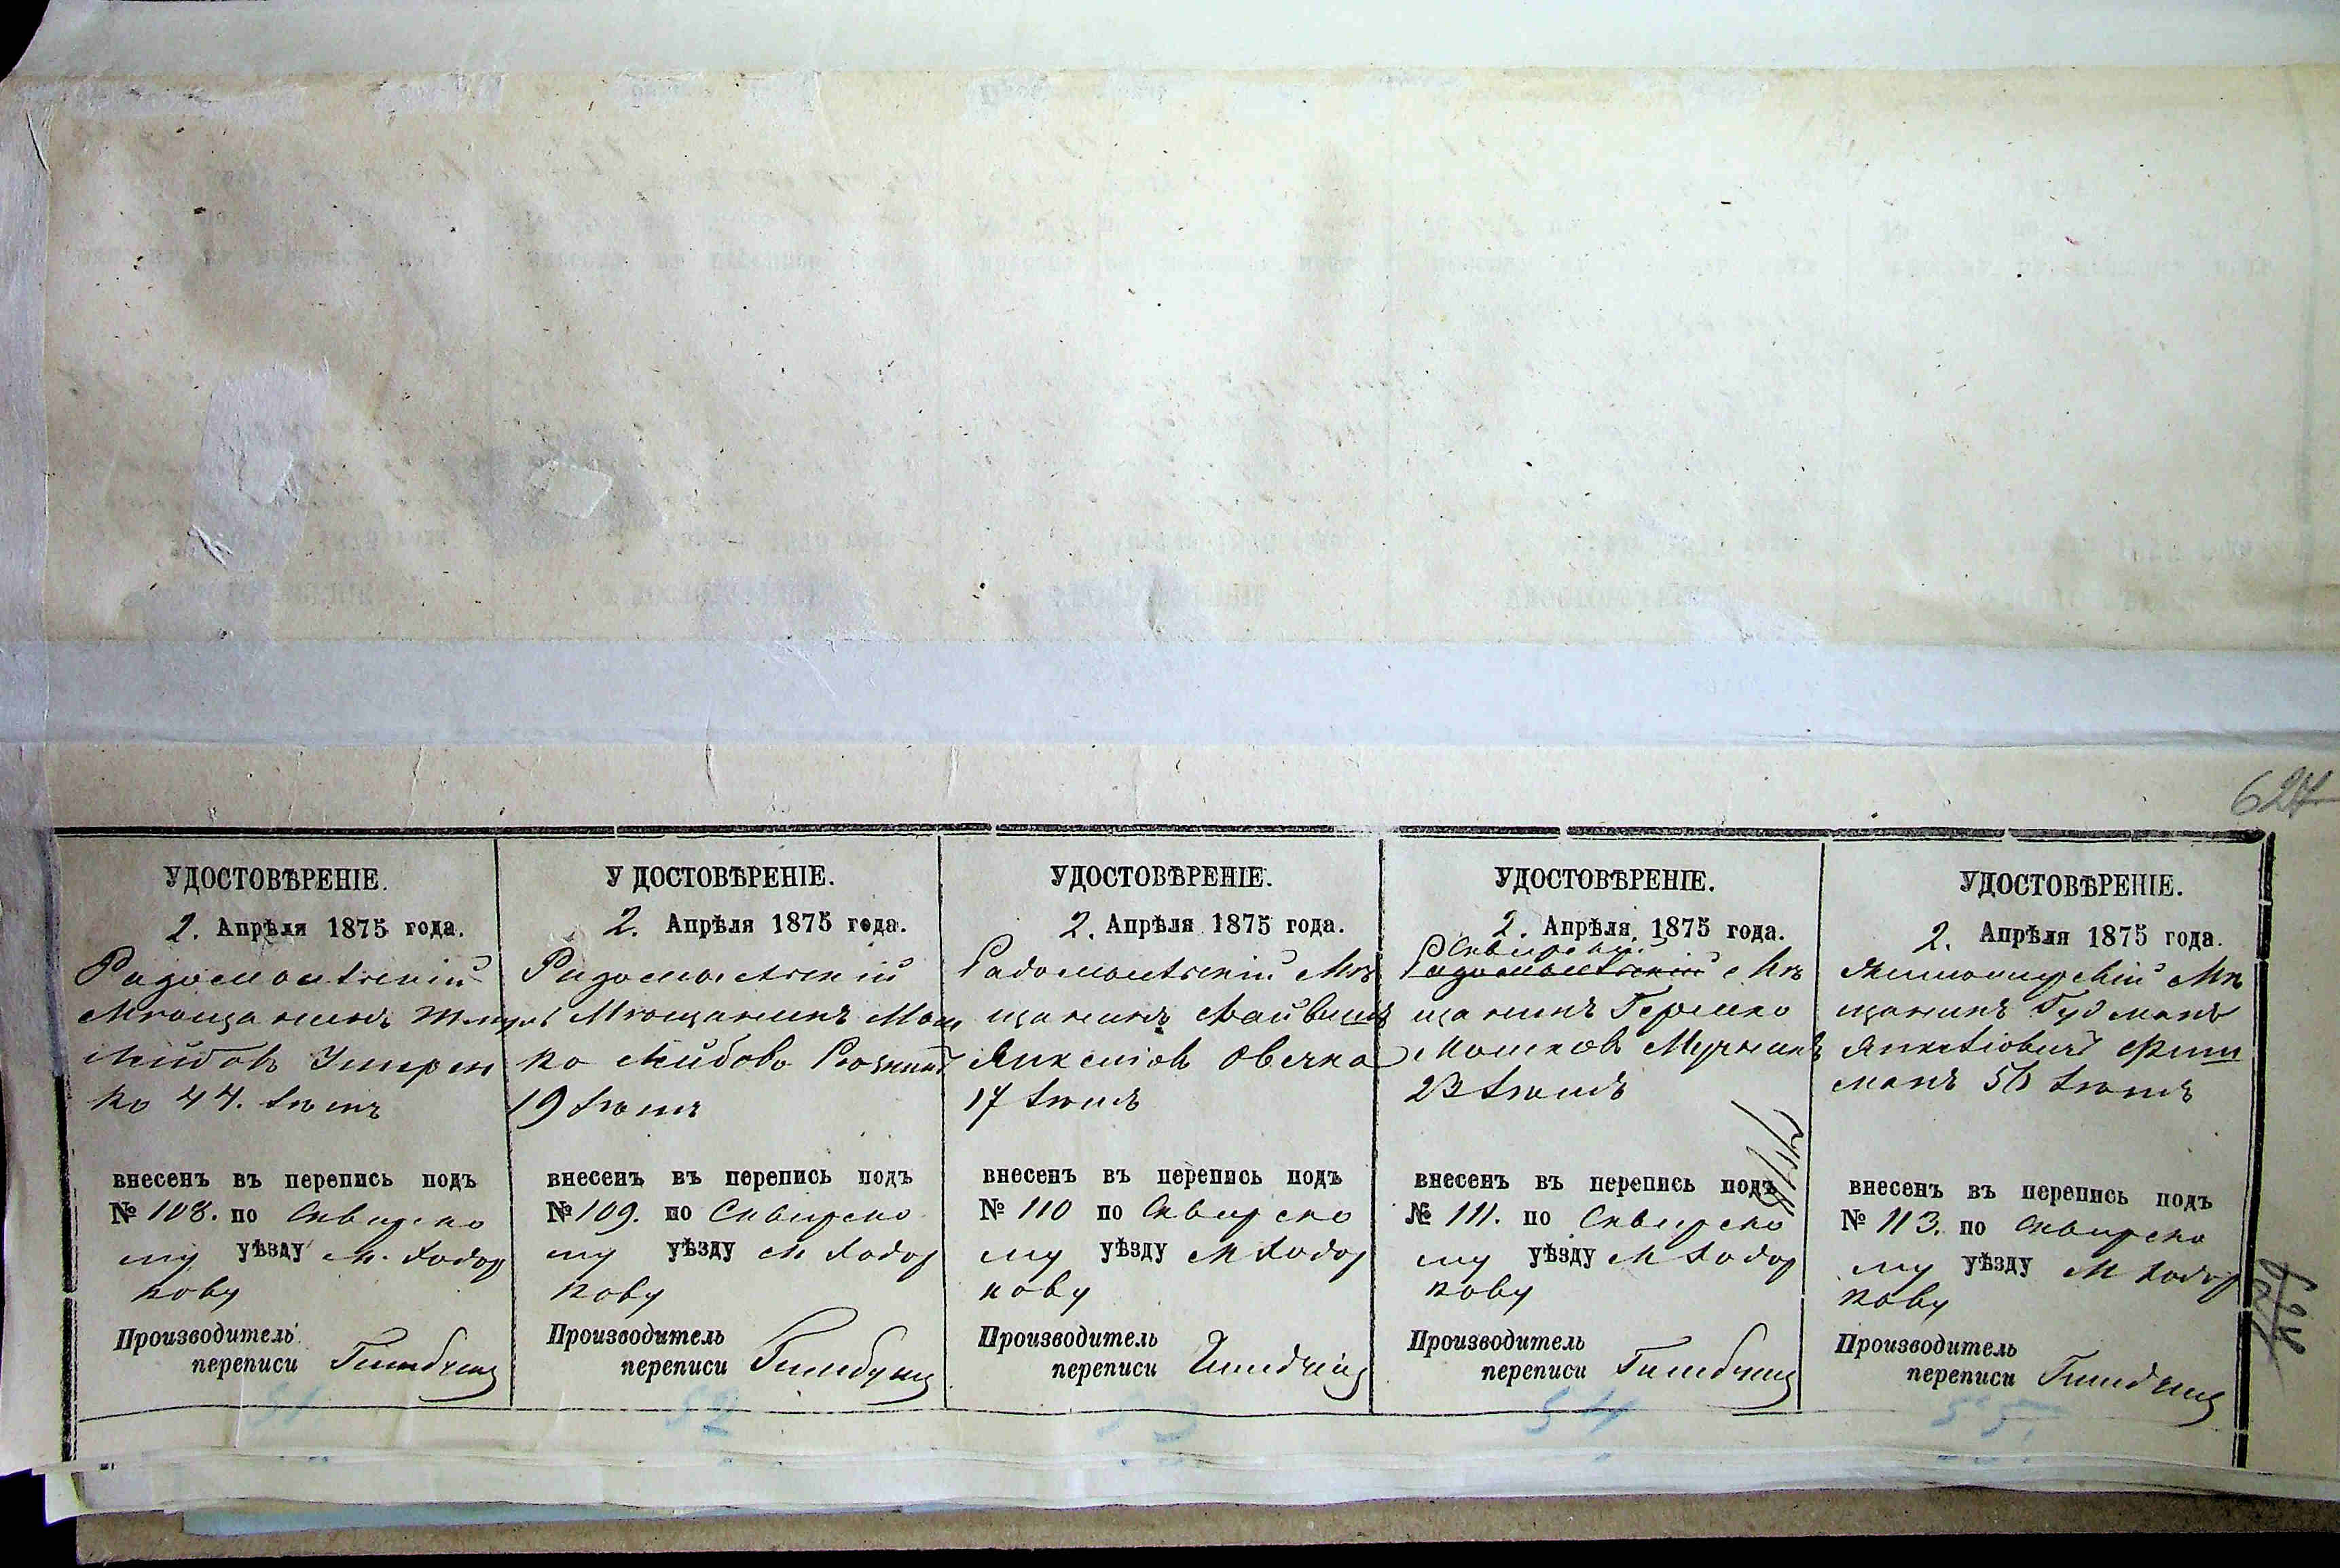 624
УДОСТОВѢРЕНІЕ.
2. Апрѣля 1875 года.
Радомысльскій
Мѣщанинъ
Лейбовъ
ко 44. лѣтъ
внесенъ въ перепись подъ
№ 108. по Сквирско
му уѣзду м. Ходор
кову
Производитель
переписи
51
УДОСТОВѢРЕНІЕ.
2. Апрѣля 1875 года.
Радомысльскій
Мѣщанинъ Мош
ко Лейбовъ
19 лѣтъ
внесенъ въ перепись подъ
№ 109. по Сквирско
му уѣзду м Ходор
кову
Производитель
переписи
52
УДОСТОВѢРЕНІЕ.
2. Апрѣля 1875 года.
Радомысльскій Мѣ
щанинъ
Овечка
17 лѣтъ
внесенъ въ перепись подъ
№ 110 по Сквирско
му уѣзду м Ходор
кову
Производитель
переписи
53
УДОСТОВѢРЕНІЕ.
2. Апрѣля 1875 года.
Сквирскій
Радомысльскій Мѣ
щанинъ Гершко
Мошковъ
23 лѣтъ
внесенъ въ перепись подъ
№ 111. по Сквирско
му уѣзду м Ходор
кову
Производитель
переписи
54
УДОСТОВѢРЕНІЕ.
2. Апрѣля 1875 года.
Житомирскій Мѣ
щанинъ Гудманъ
Янкеліовичъ Фиш
манъ лѣтъ
внесенъ въ перепись подъ
№ 113. по Сквирско
му уѣзду м Ходор
кову
Производитель
переписи
55.